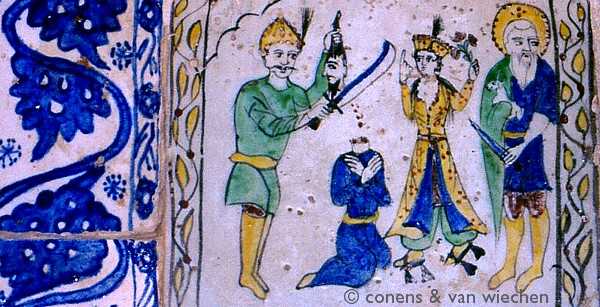 © conens & van wiechen